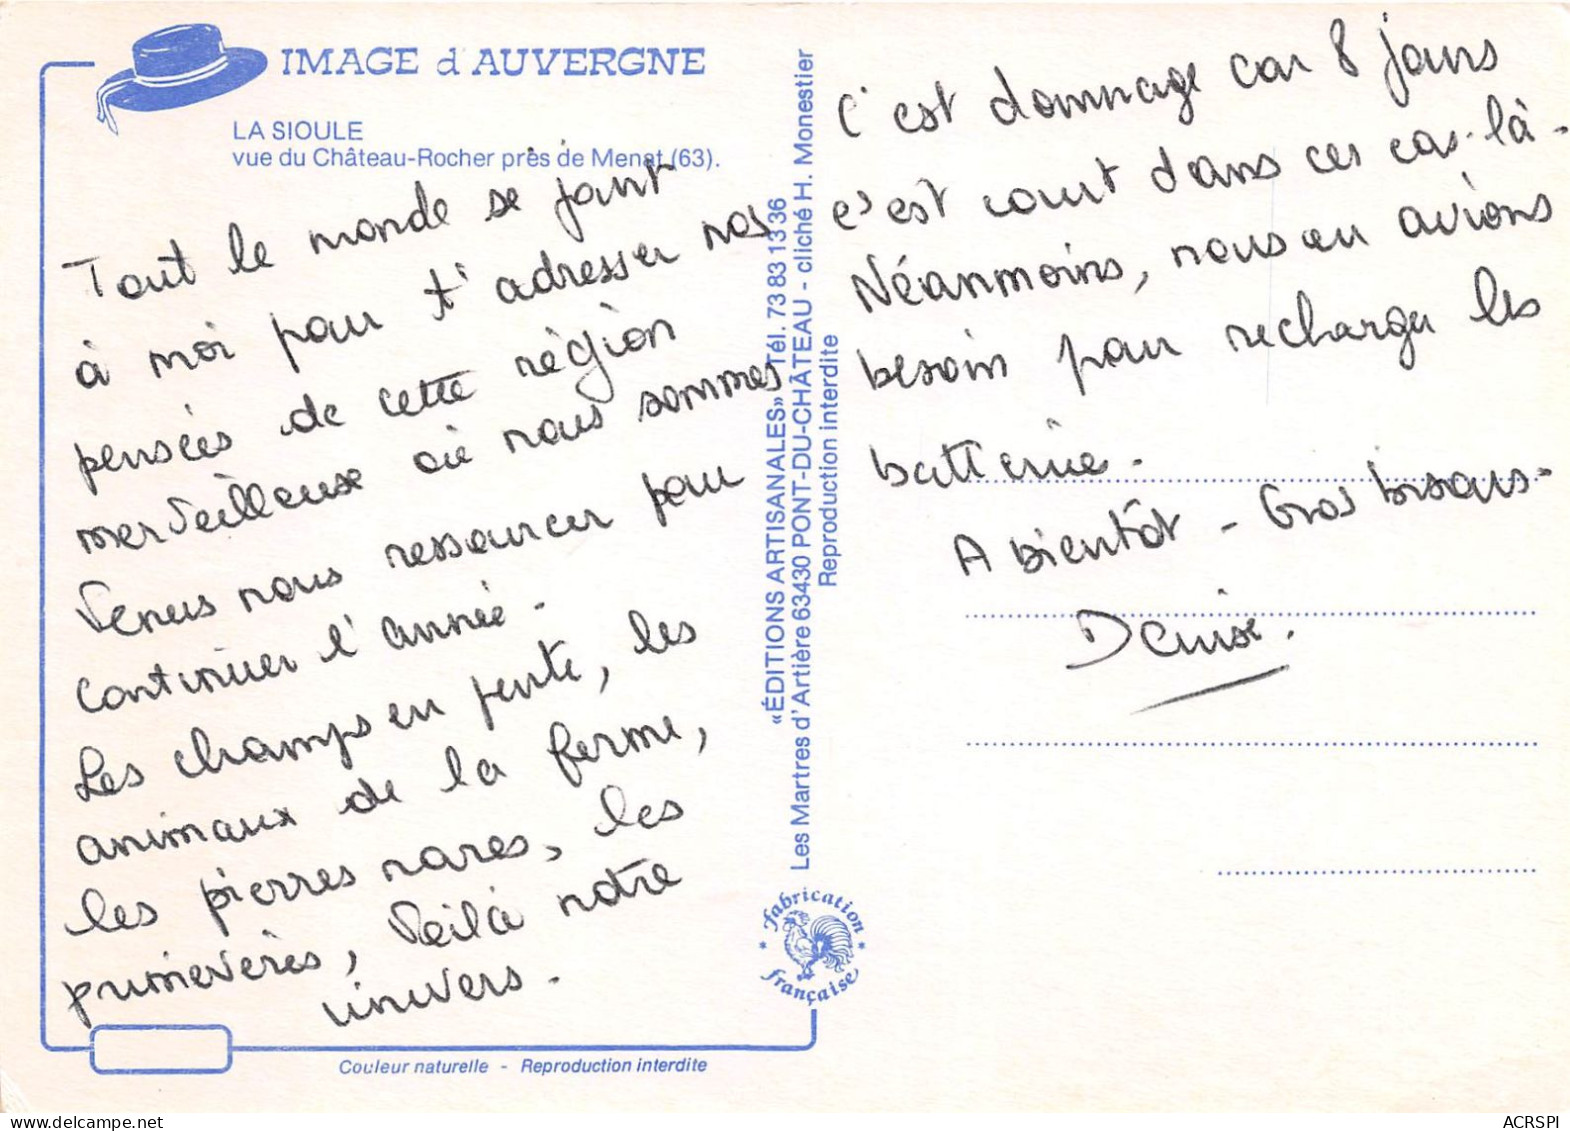 IMAGE d'AUVERGNE
LA SIOULE
vue du Château-Rocher près de Menat (63).
Tout le monde se joint
à moi pour t'adresser nos
pensées de cette région
merveilleuse où nous sommes
venus nous ressourcer pour
continuer l'année.
Les champs en pente, les
animaux de la ferme,
les pierres rares, les
primevères, voilà notre
univers.
Couleur naturelle - Reproduction interdite
«ÉDITIONS ARTISANALES» Tél. 73 83 13 36
Les Martres d'Artière 63430 PONT-DU-CHÂTEAU - cliché H. Monestier
Reproduction interdite
Fabrication
française
C'est dommage car 8 jours
c'est court dans ces cas-là.
Néanmoins, nous en avions
besoin pour recharger les
batteries.
A bientôt - Gros bisous.
Denise.
ACRSPI